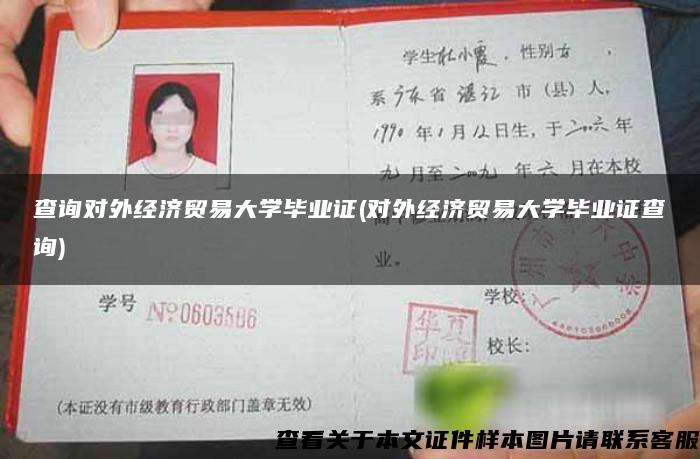 学生杜小霞，性别女，
系广东省湛江市（县）人，
1990年1月12日生，于二〇〇六年
九月至二〇〇九年六月在本校
查询对外经济贸易大学毕业证(对外经济贸易大学毕业证查
询)
业。
学号 №0603586
学校：
华夏
印
校长：
(本证没有市级教育行政部门盖章无效)
查看关于本文证件样本图片请联系客服